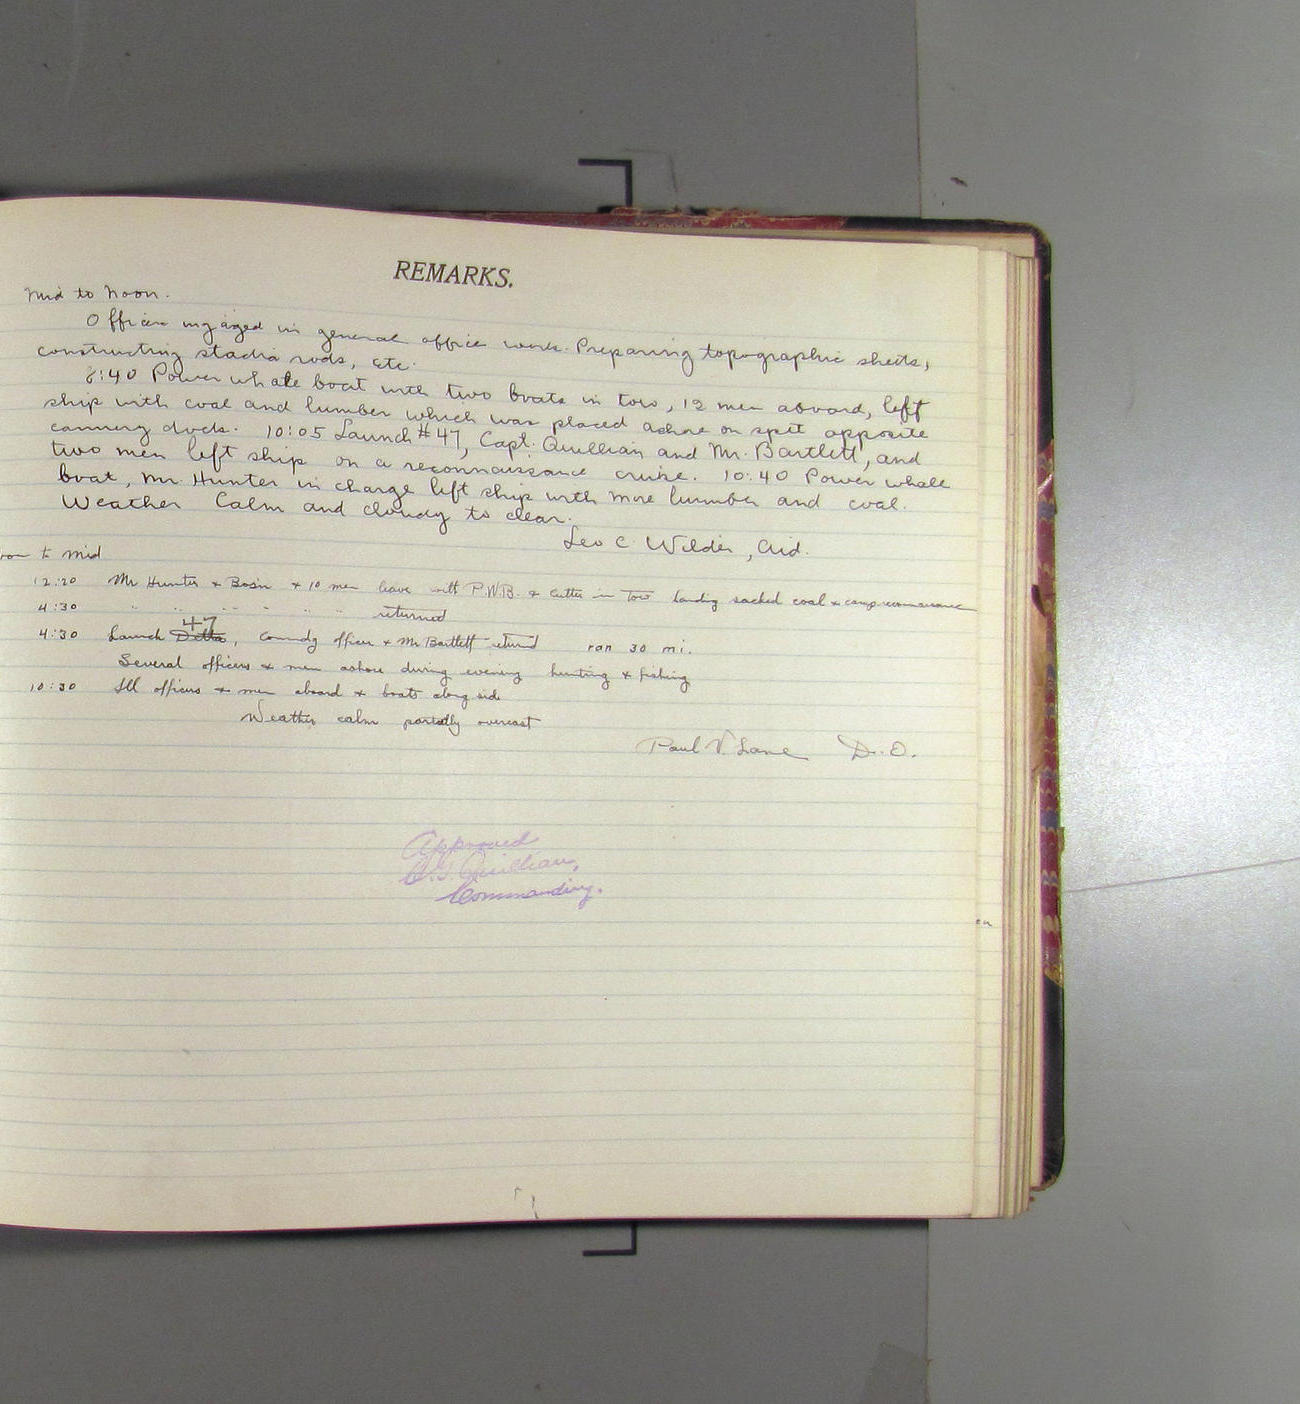 REMARKS.
Mid to Noon.
Officers engaged in general office work. Preparing topographic sheets,
constructing stadia rods, etc.
8:40 Power whale boat with two boats in tow, 12 men aboard, left
ship with coal and lumber which was placed ashore on spit opposite
cannery dock. 10:05 Launch #47, Capt. Quillian and Mr. Bartlett, and
two men left ship on a reconnaissance cruise. 10:40 Power whale
boat, Mr. Hunter in charge left ship with more lumber and coal.
Weather Calm and cloudy to clear.
Leo C. Wilder, Aid.
to mid
12:20 Mr Hunter + Bosn + 10 men leave with P.W.B. + cutter in tow landing sacked coal + camp
4:30 " " " " " " returned
4:30 Launch 47, Comndg officer + Mr Bartlett returnd ran 30 mi.
Several officers + men ashore during evening hunting + fishing
10:30 All officers + men aboard + boats along side
Weather calm partially overcast
Paul V. Lane D.O.
Approved
Quillian,
Commanding.
en